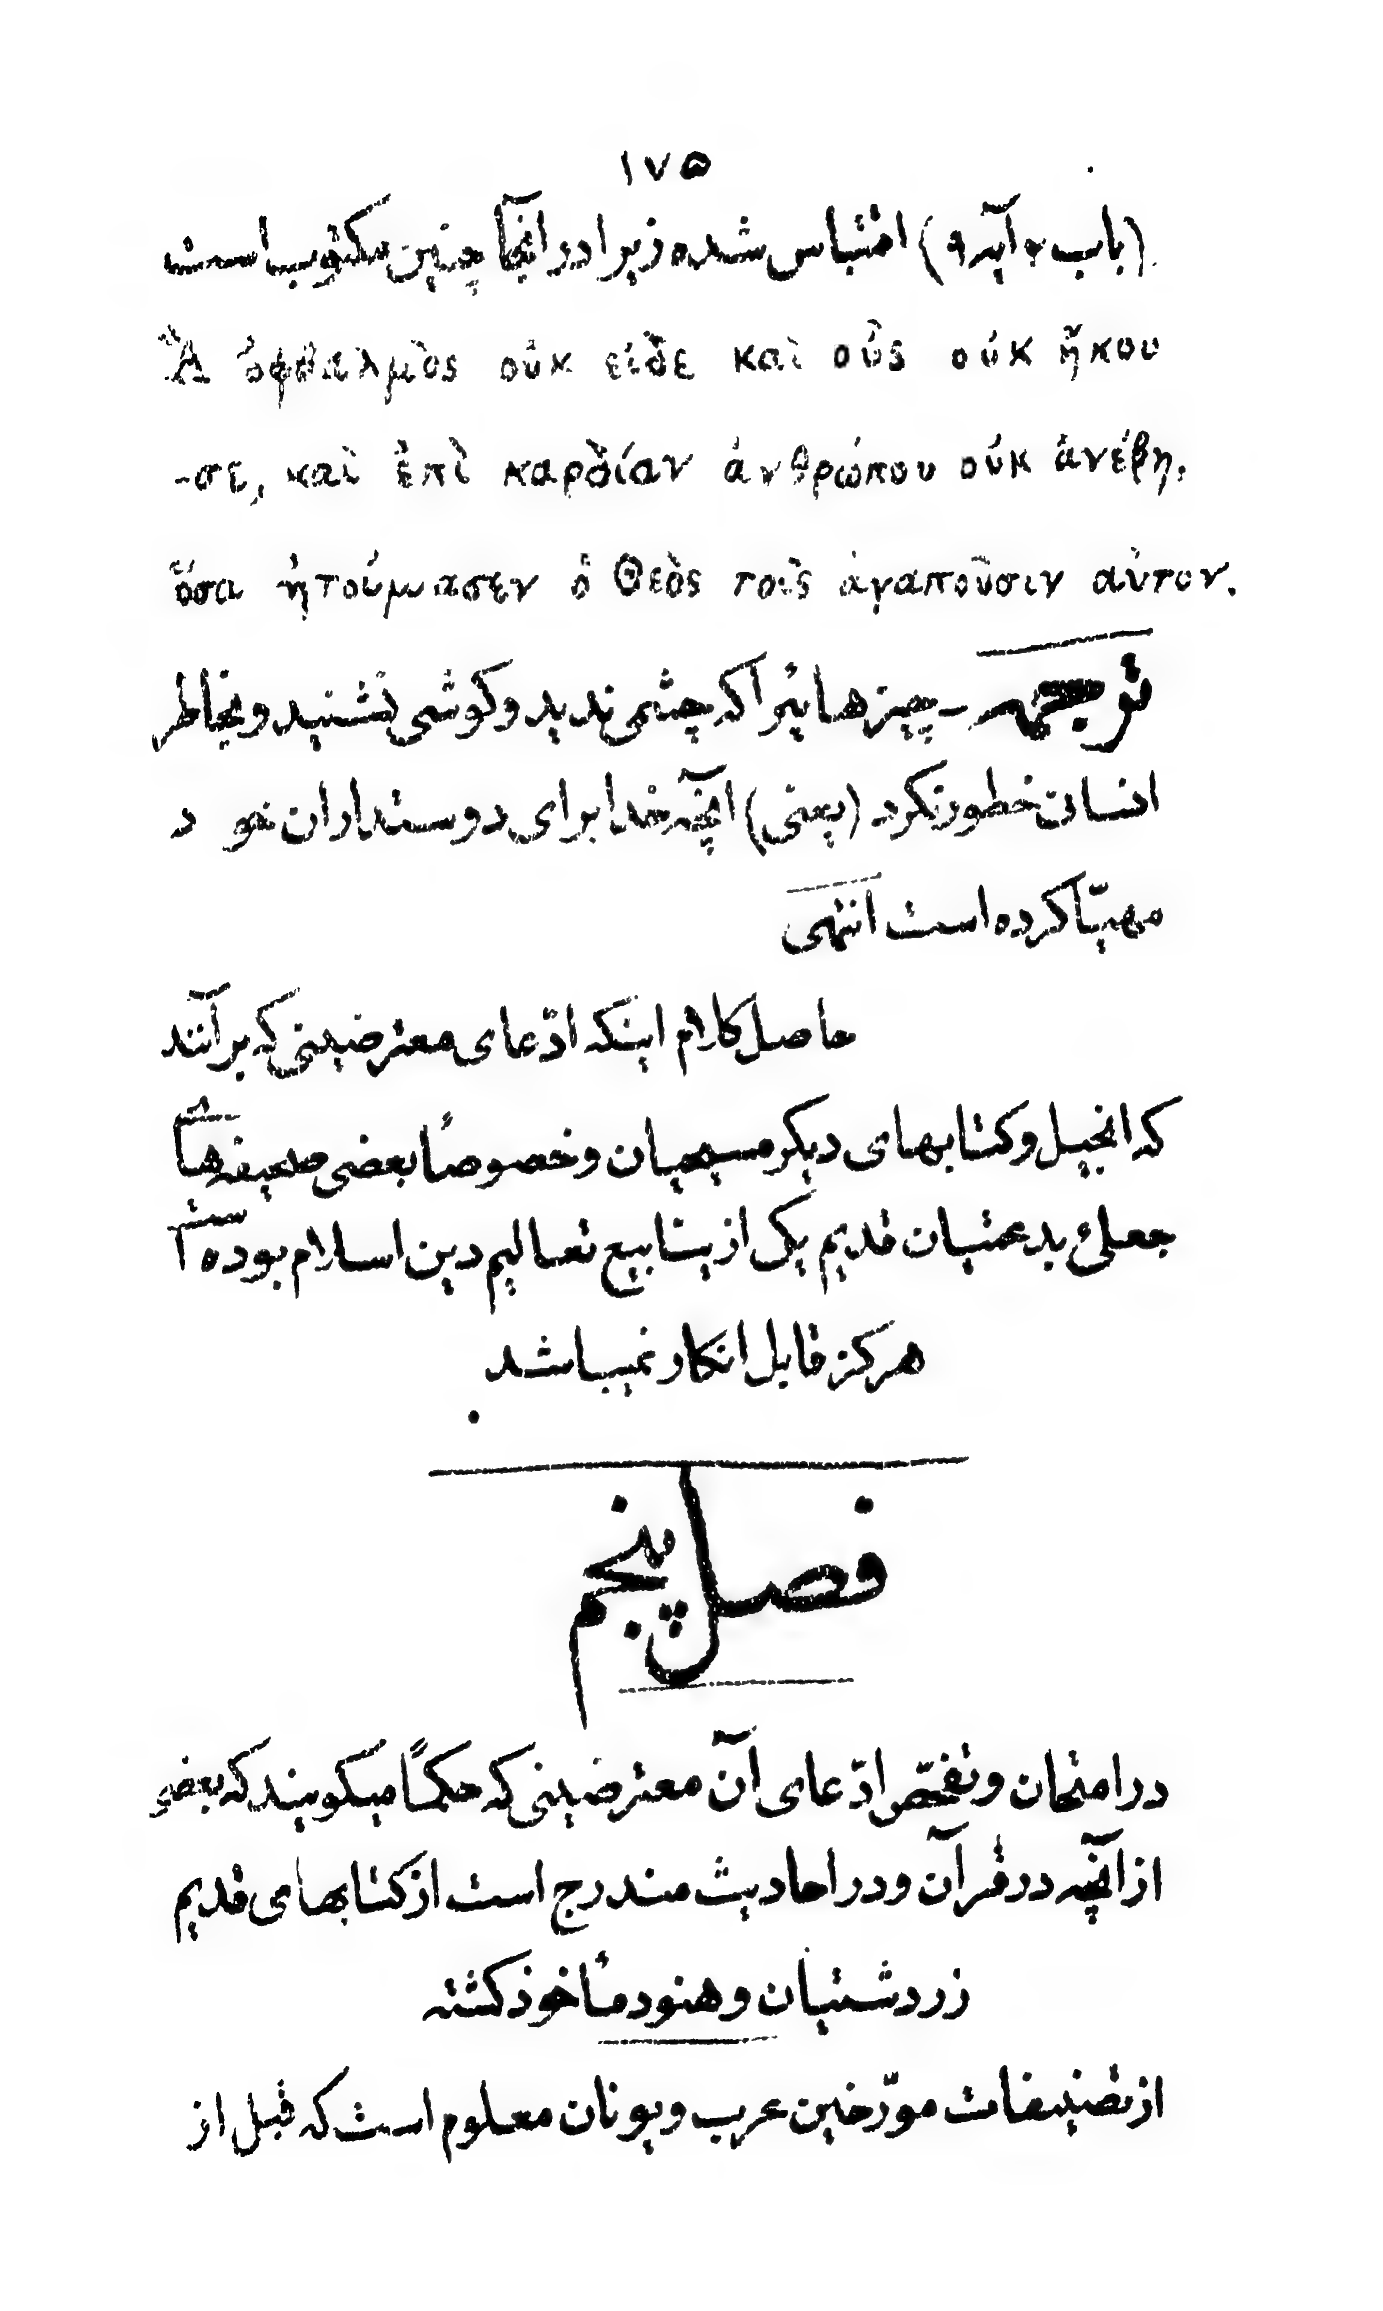 ١٧٥
(باب ٢ آیه ٩) اقتباس شده زیرا در آنجا چنین مکتوب است
Ἃ ὀφθαλμὸς οὐκ εἶδε καὶ οὖς οὐκ ἤκου
-σε, καὶ ἐπὶ καρδίαν ἀνθρώπου οὐκ ἀνέβη,
ὅσα ἡτοίμασεν ὁ Θεὸς τοῖς ἀγαποῦσιν αὐτον.
ترجمه - چیزهائیرا که چشمی ندید و گوشی نشنید و بخاطر
انسانی خطور نکرد (یعنی) آنچه خدا برای دوستداران خود
مهیّا کرده است انتهی
حاصل کلام اینکه ادّعای معترضینی که بر آنند
که انجیل و کتابهای دیگر مسیحیان و خصوصًا بعضی صحیفه های
جعلئ بدعتیان قدیم یک از ینابیع تعالیم دین اسلام بوده است
هرگز قابل انکار نمیباشد
فصل پنجم
در امتحان و تفحّص ادّعای آن معترضینی که حکمًا میگویند که بعضی
از آنچه در قرآن و در احادیث مندرج است از کتابهای قدیم
زردشتیان و هنود مأخوذ گشته
از تصنیفات مورّخین عرب و یونان معلوم است که قبل از